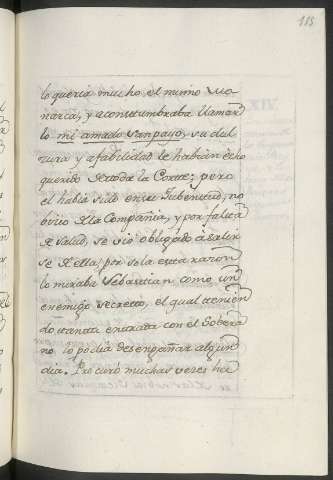 115
lo queria mucho el mismo Mo
narca, y acostumbraba llamar
lo mi amado Sanpayo, su dul
zura y afabilidad le habian echo
querido de toda la Corte; pero
el habia sido en su Jubentud, no
bicio de la Compañia, y por falta
de salud, se vió obligado á salir
se de ella; por sola esta razon
lo miraba Sebastian como un
enemigo secreto, el qual tenien
do tanta entrata con el Sobera
no lo podia desengañar algun
dia. Procuró muchas veces her